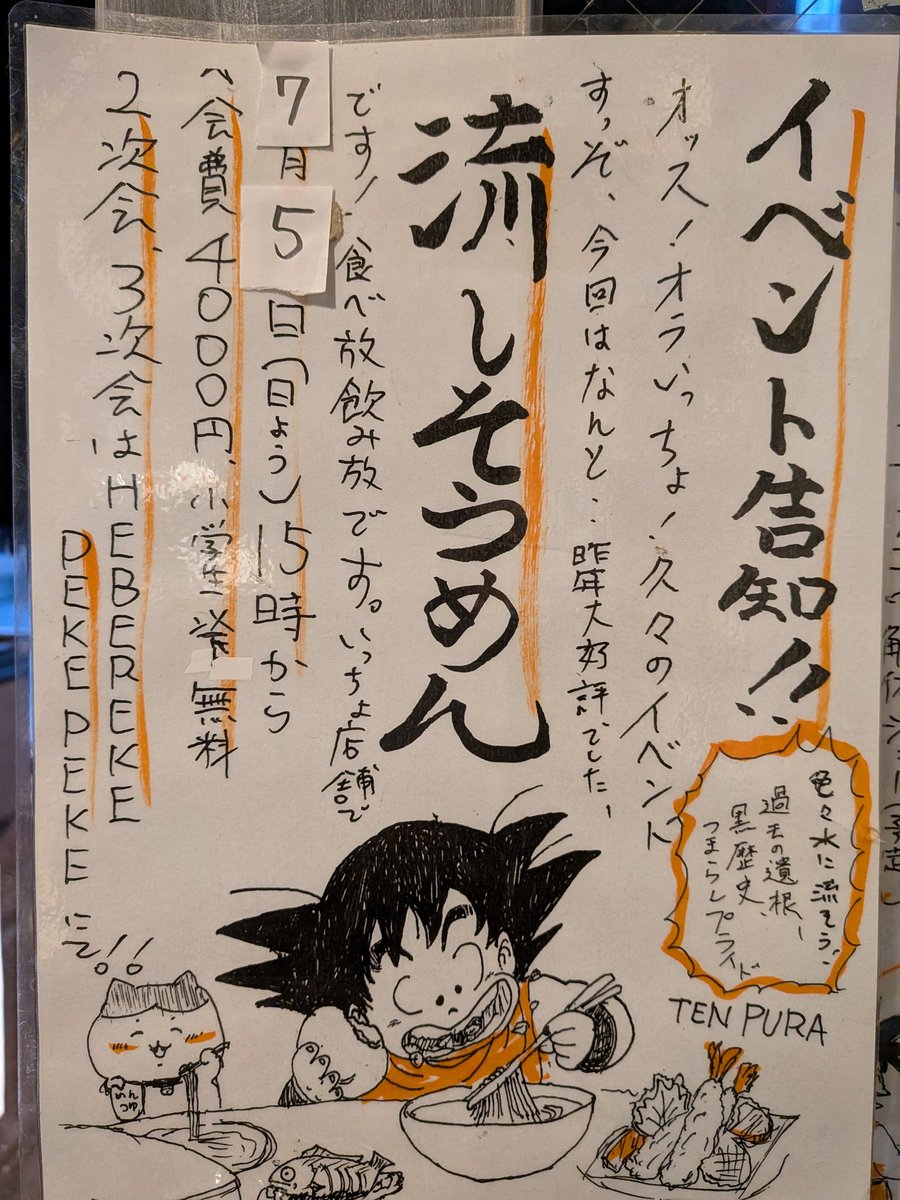 イベント告知!!
オッス!オラいっちょ!久々のイベント
すっぞ、今回はなんと、昨年大好評でした、
流しそうめん
です!食べ放飲み放です。いっちょ店舗で
7月5日(日よう)15時から
会費4000円、小学生 無料
2次会、3次会はHEBEREKE
PEKEPEKEにて!!
色々水に流そう!
過去の遺根、
黒歴史、
つまらんプライド
TEN PURA
めんつゆ